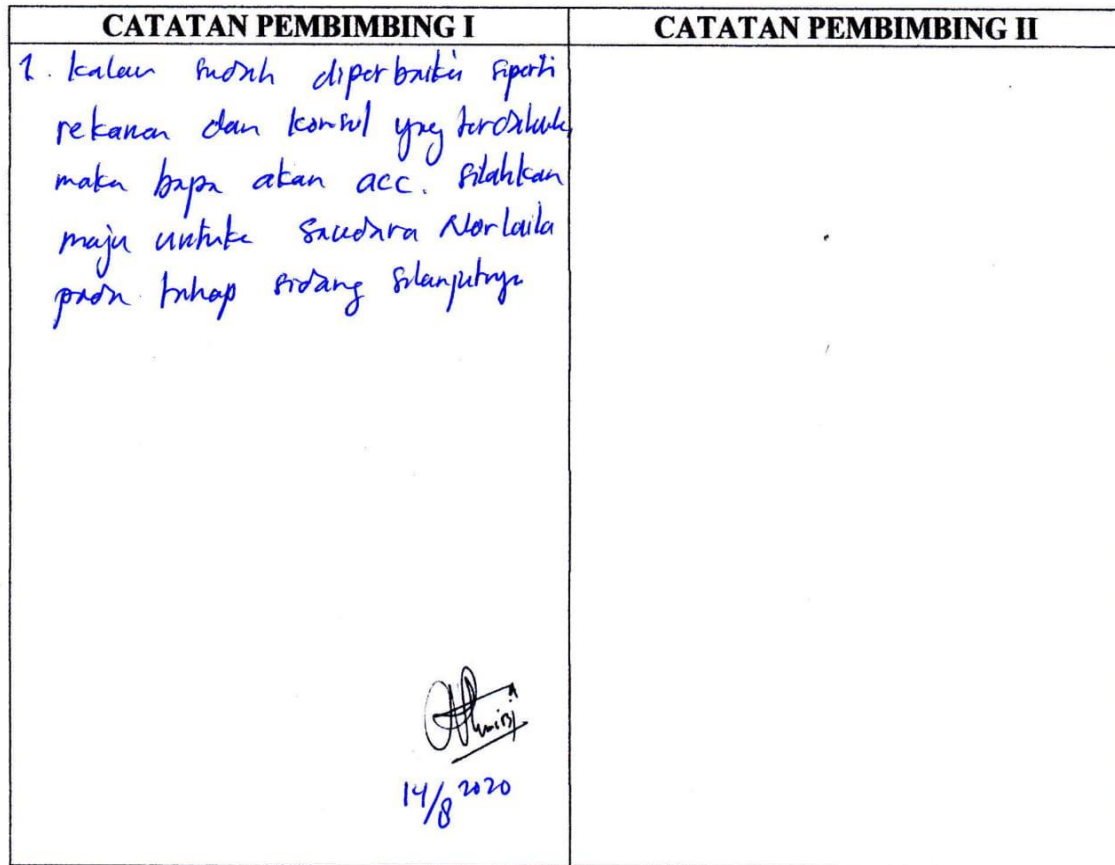 CATATAN PEMBIMBING I
CATATAN PEMBIMBING II
1. kalau sudah diperbaiki seperti
rekanan dan konsul yang terdahulu
maka bapa akan acc. silahkan
maju untuk saudara Norlaila
pada tahap sidang selanjutnya
14/8 2020